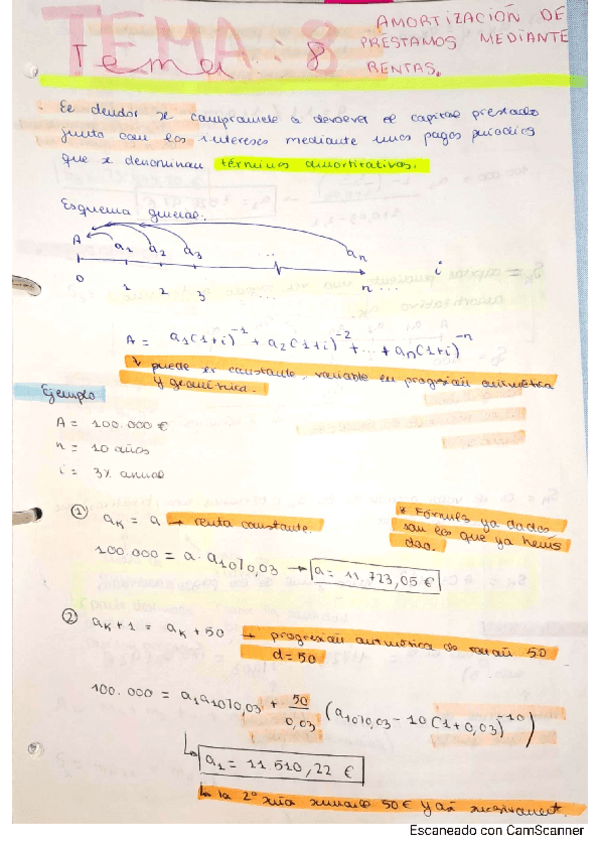 TEMA: 8
Tema: 8
AMORTIZACIÓN DE
PRÉSTAMOS MEDIANTE
RENTAS.
El deudor se compromete a devolver el capital prestado
junto con los intereses mediante unos pagos periódicos
que se denominan términos amortizativos.
Esquema general.
A a1 a2 a3 ... an
0 1 2 3 ... n ... i
A = a1(1+i)^-1 + a2(1+i)^-2 + ... + an(1+i)^-n
↳ puede ser constante, variable en progresión aritmética
y geométrica.
Ejemplo
A = 100.000 €
n = 10 años
i = 3% anual
① aK = a → renta constante.
* Fórmulas ya dadas
son las que ya hemos
dado.
100.000 = a · a10⌉0,03 → a = 11.723,05 €
② aK+1 = aK + 50 → progresión aritmética de razón 50
d = 50
100.000 = a1 a10⌉0,03 + 50/0,03 (a10⌉0,03 - 10(1+0,03)^-10)
↳ a1 = 11.510,22 €
↳ la 2º sería sumando 50€ y así sucesivament.
Escaneado con CamScanner